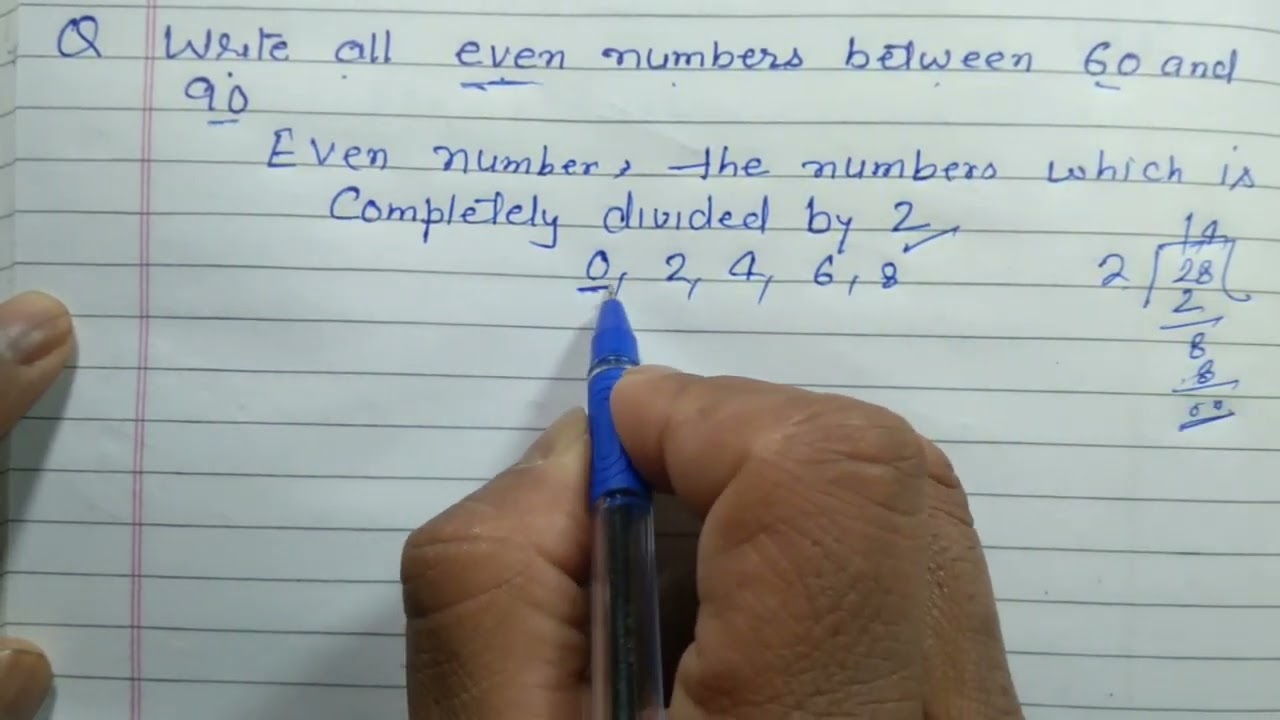 Q Write all even numbers between 60 and
90
Even number, the numbers which is
Completely divided by 2
0, 2, 4, 6, 8
14
2 28
2
8
8
00